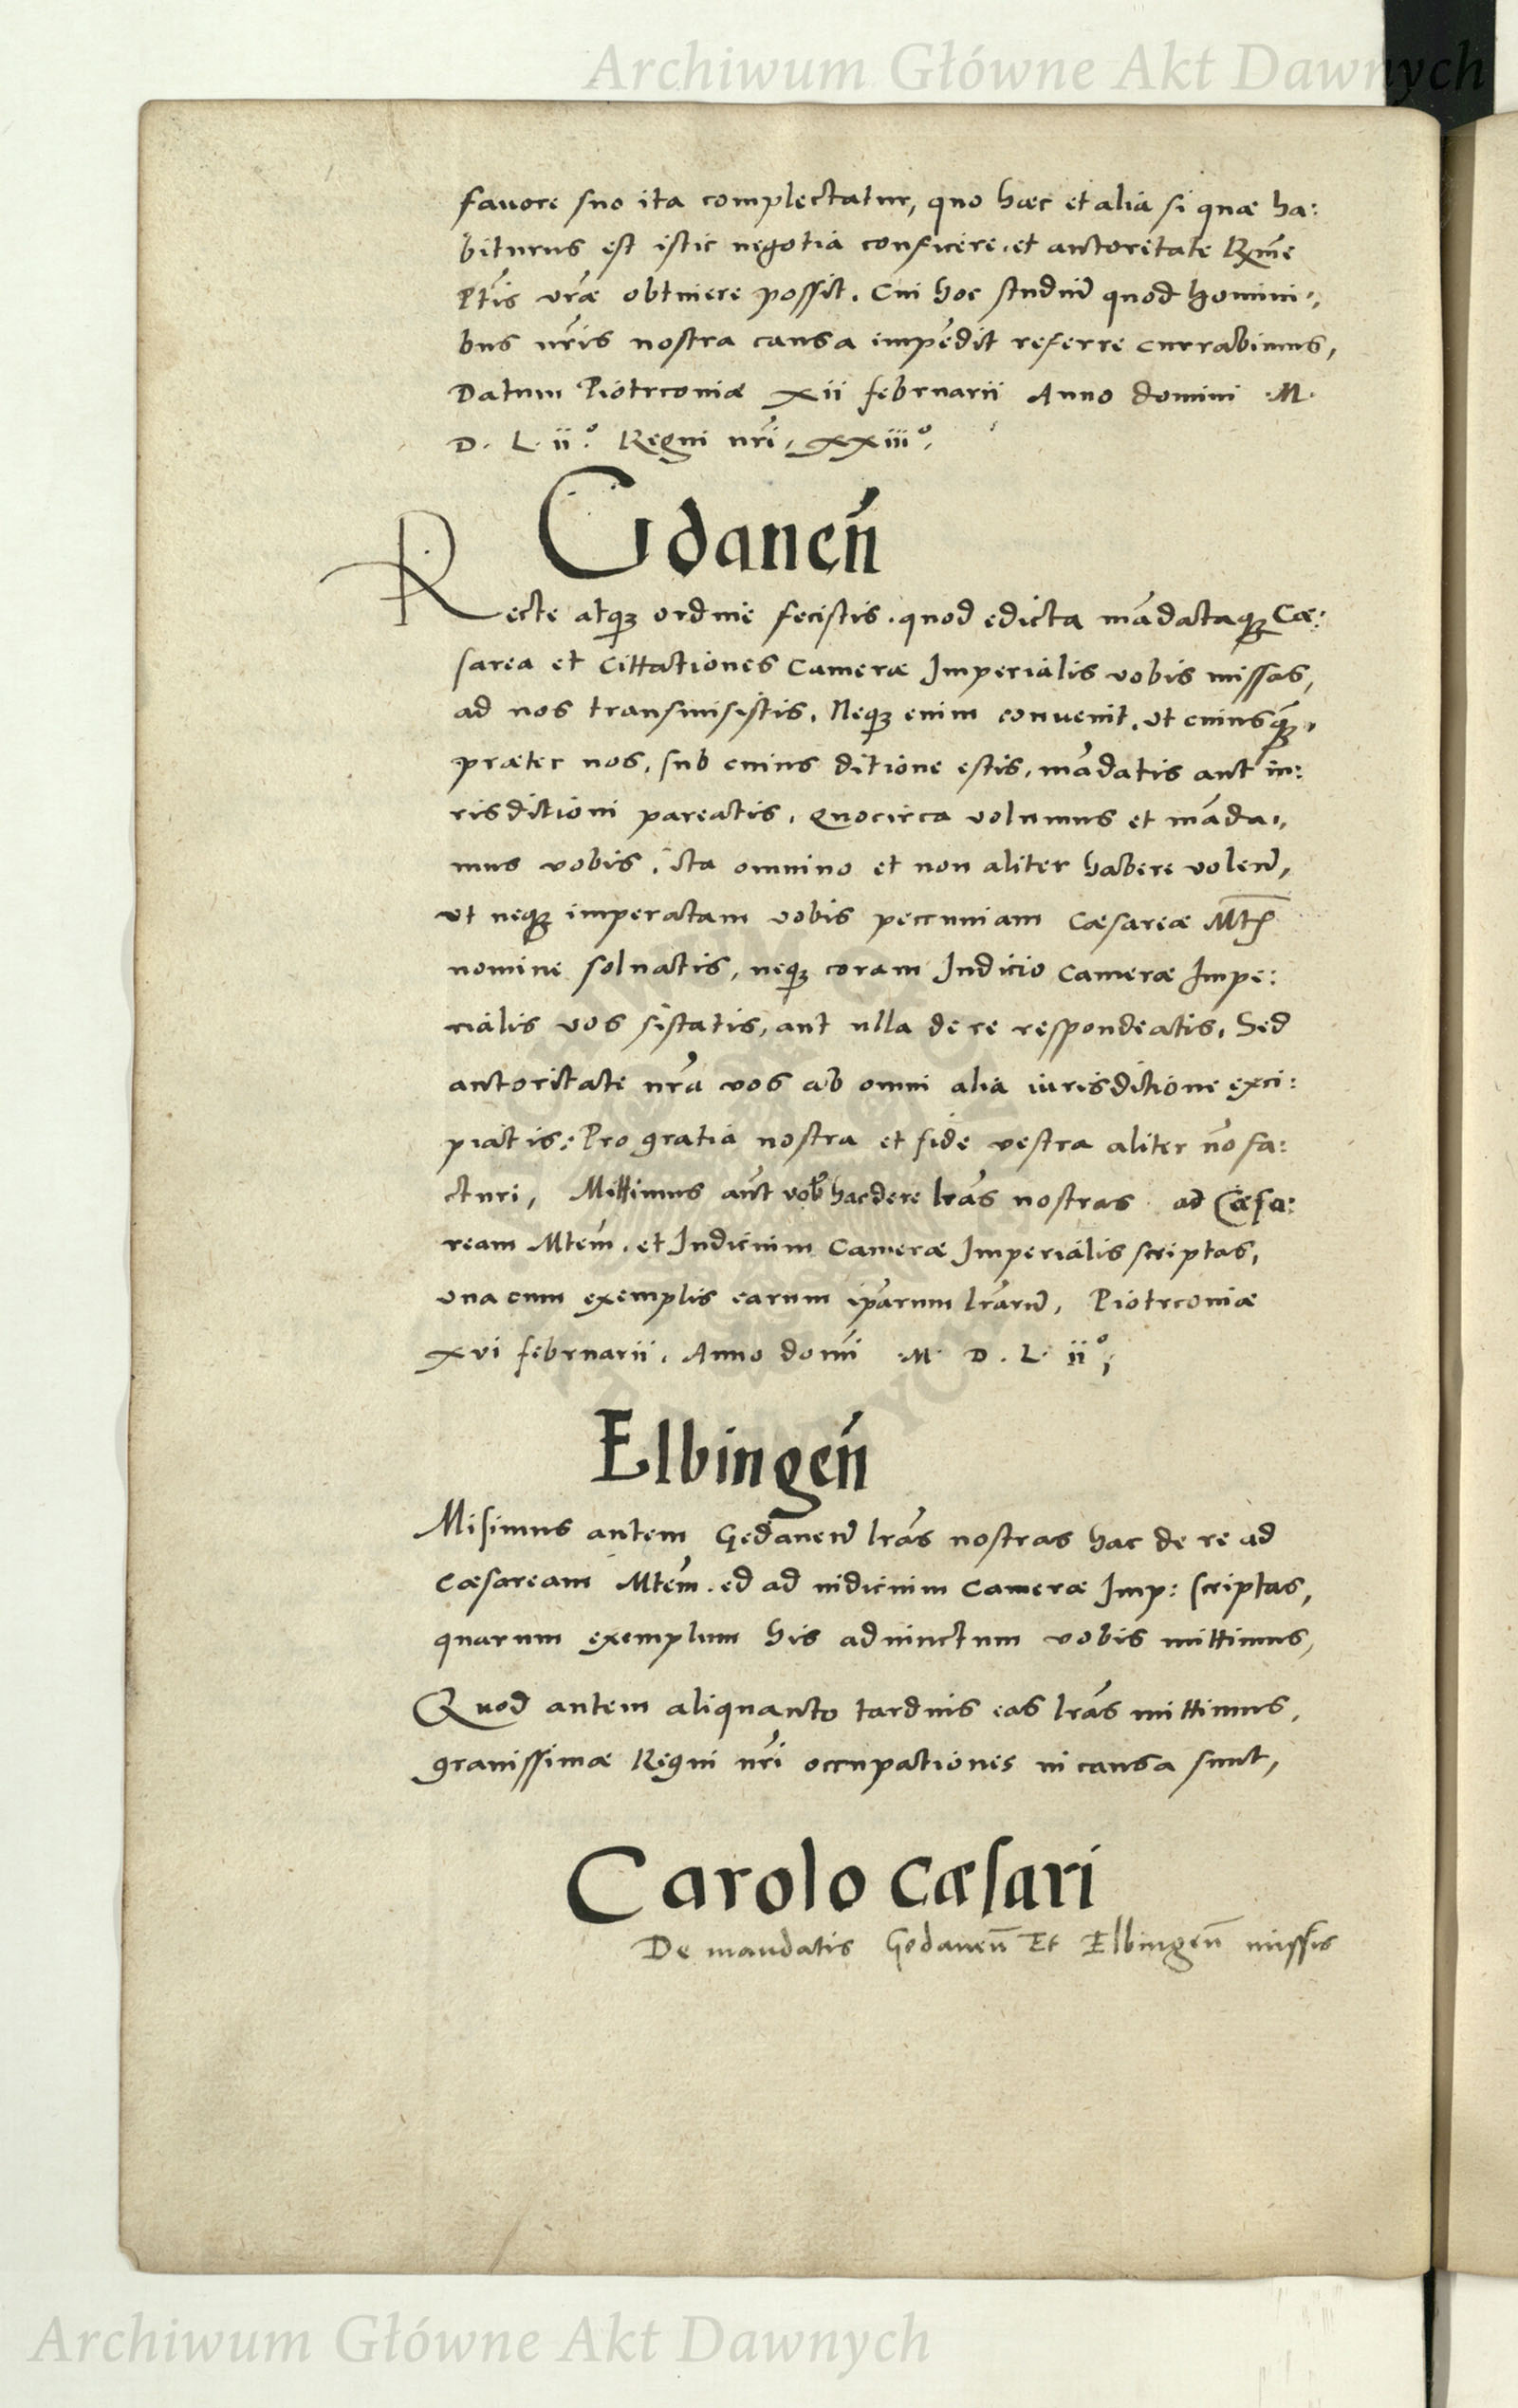 Archiwum Główne Akt Dawnych
favore suo ita complectatur, quo haec et alia si quæ ha:
biturus est istic negotia conficere et autoritate Rm̃e
Ptīs vr̃æ obtinere possit. Cui hoc studiũ quod homini,,
bus nr̃is nostra causa impẽdit referre currabimus,
Datum Piotrconiæ xii februarii Anno domini .M.
D. L. ii.° Regni nr̃i, xxiii°,
Gdaneñ
Recte atq; ordine fecistis. quod edicta mãdataq; Cæ:
sarea et Cittationes Cameræ Imperialis vobis missas,
ad nos transmisistis. Neq; enim convenit, ut cuiusq̃;,
præter nos, sub cuius ditione estis, mãdatis aut iu:
risdictioni pareatis. Quocirca volumus et mãda,,
mus vobis, ita omnino et non aliter habere volen̄,
ut neq; imperatam vobis peccuniam Cæsareæ Mtis
nomine solvatis, neq; coram Iudicio Cameræ Impe:
rialis vos sistatis, aut ulla de re respondeatis. Sed
autoritate nr̃a vos ab omni alia iurisditione exci:
piatis: Pro gratia nostra et fide vestra aliter nõ fa:
cturi, Mittimus aũt vob̃ hac de re lr̃as nostras ad Cæsa:
ream Mtem̃. et Iudicium Cameræ Imperialis scriptas,
una cum exemplis earum ip̃arum lr̃arũ, Piotrconiæ
xvi februarii. Anno domĩ .M. D. L. ii°,
Elbingeñ
Misimus autem Gedanen̄ lr̃as nostras hac de re ad
Cæsaream Mtem̃. ed ad iudicium Cameræ Imp: scriptas,
quarum exemplum his adiunctum vobis mittimus,
Quod autem aliquanto tardius eas lr̃as mittimus,
gravissimæ Regni nr̃i occupationes in causa sunt,
Carolo Cæsari
De mandatis Gedaneñ Et Elbingeñ missis
Archiwum Główne Akt Dawnych